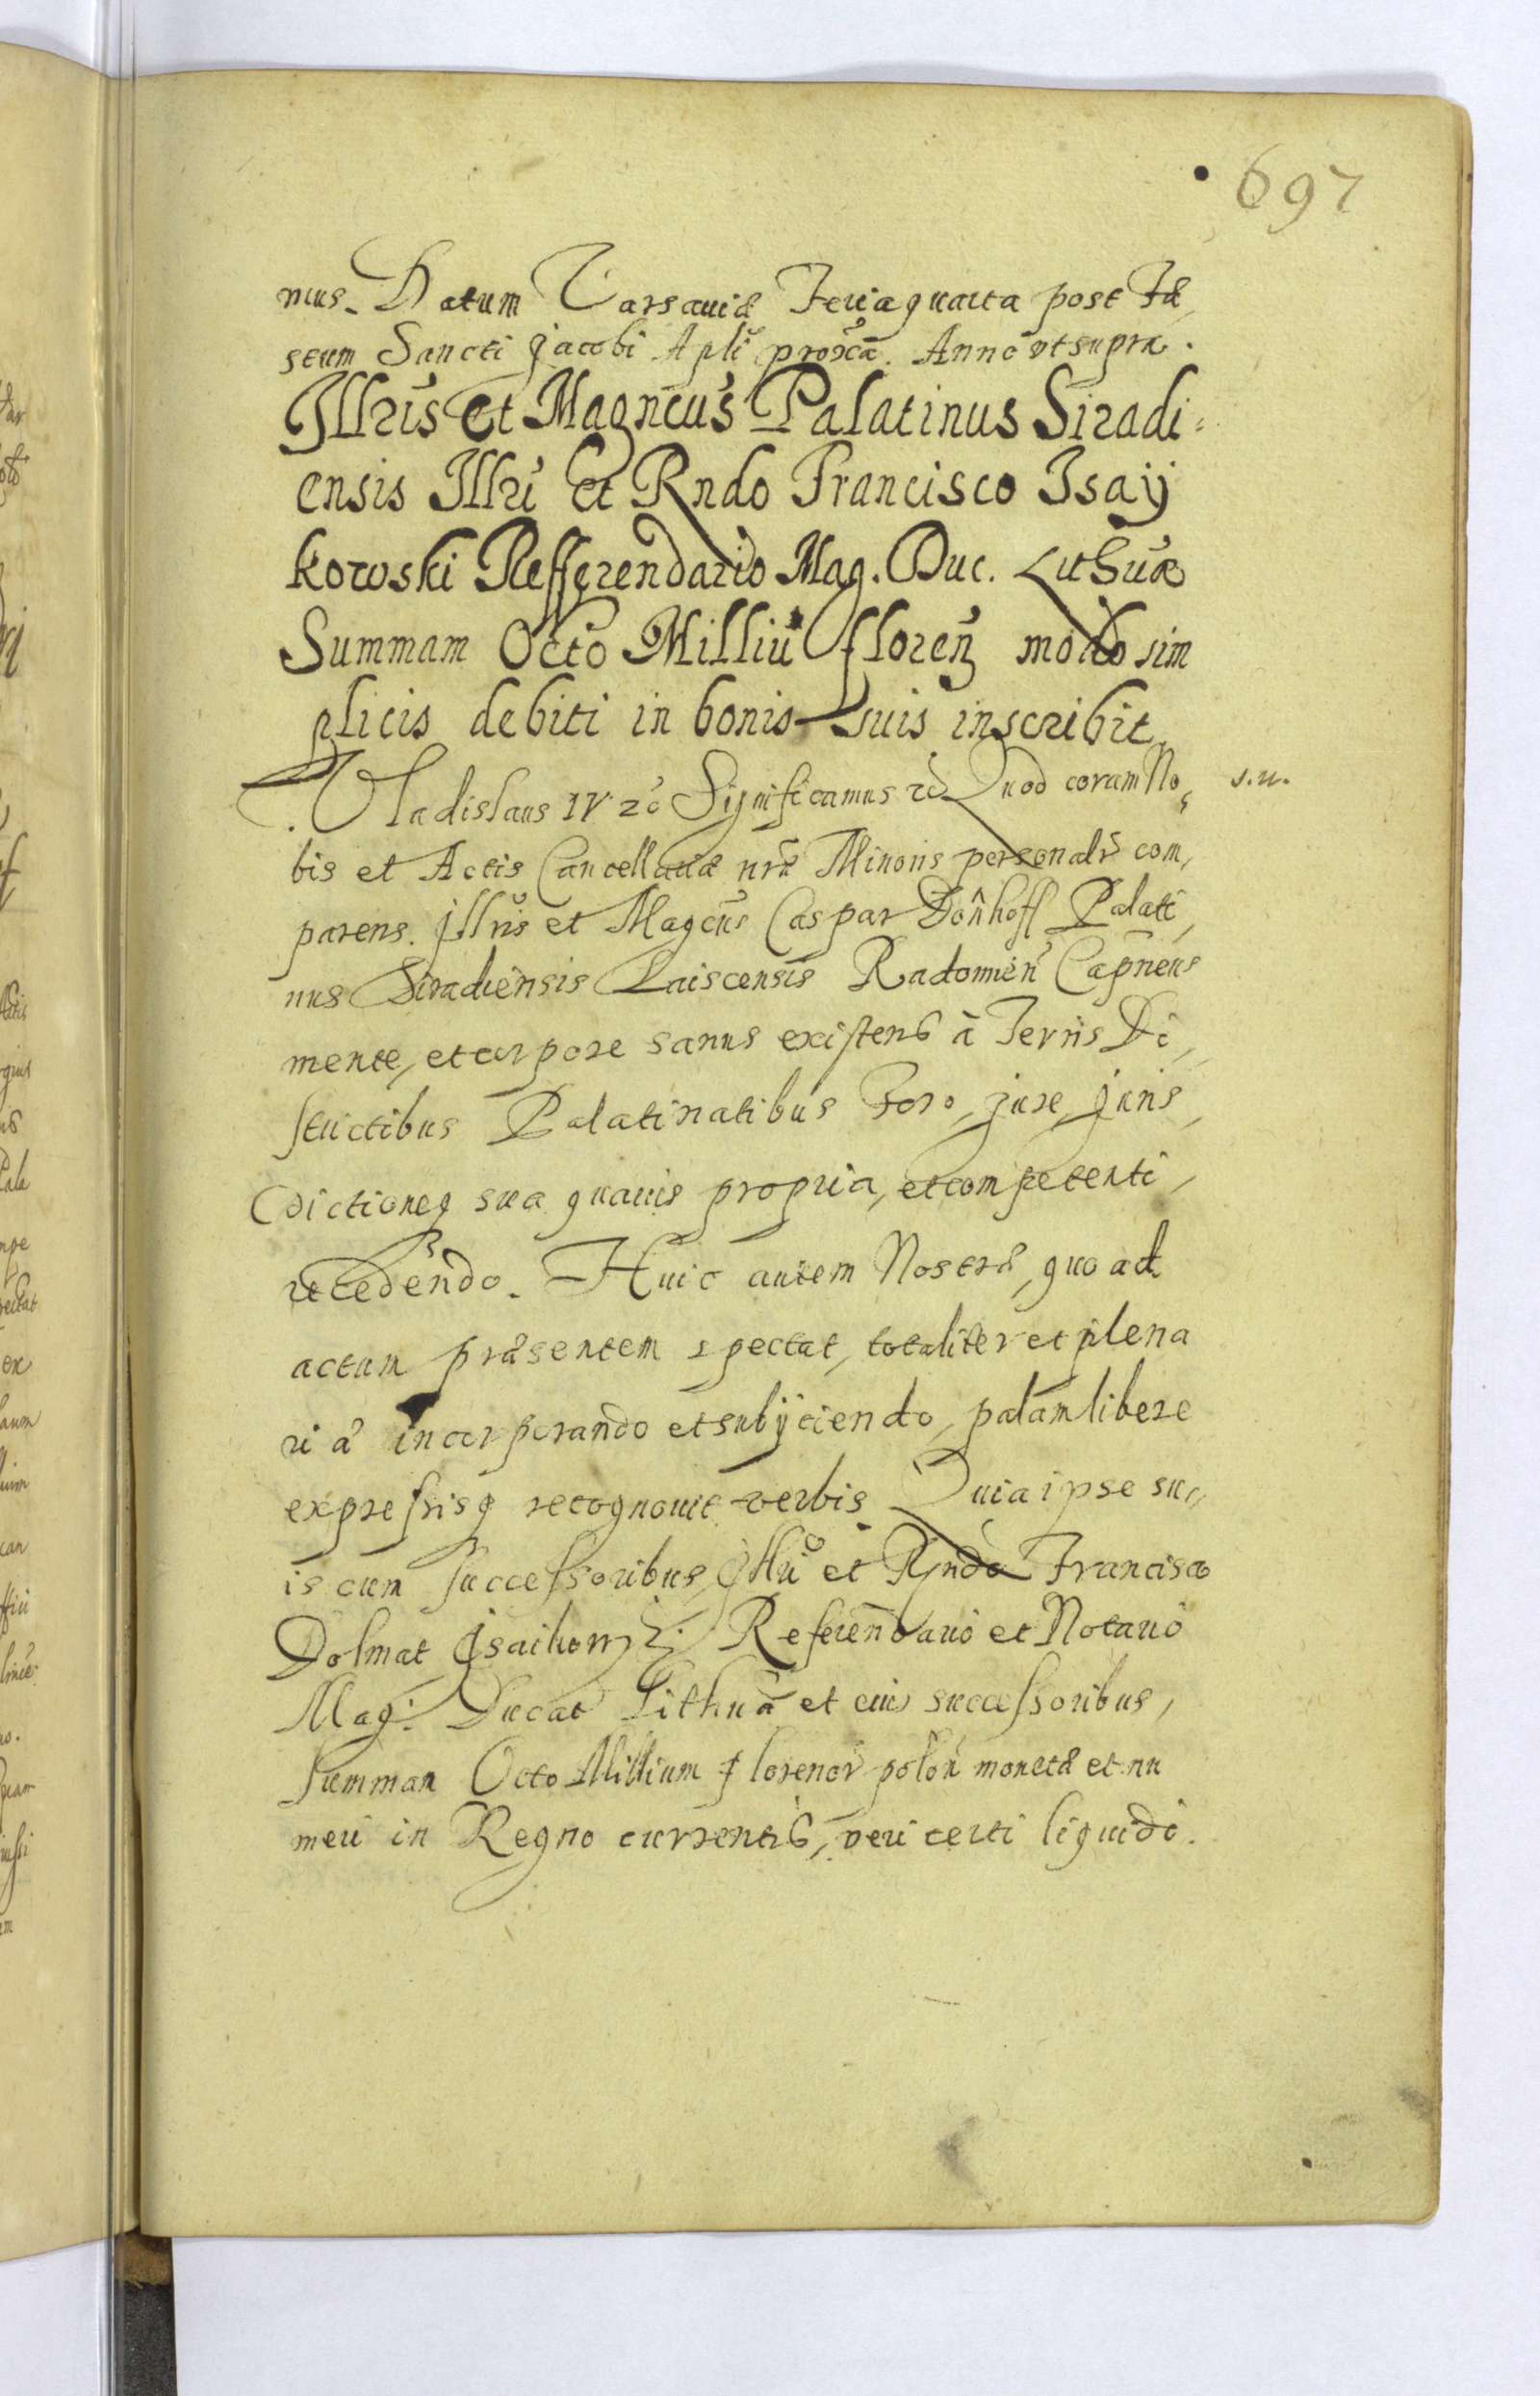 697
mus. Datum Varsauiæ Feria quarta post Fe,
stum Sancti Jacobi Apli proxã. Anno ut supra.
Illris et Magncus Palatinus Siradi-
ensis Illri et Rndo Francisco Isaij
kowski Refferendario Mag. Duc. Lithuæ
Summam Octo Milliũ floreñ modo sim
plicis debiti in bonis suis inscribit
Vladislaus IV etc Significamus etc Quod coram No, s.n.
bis et Actis Cancellariæ nræ Minoris personalr com,
parens. Illris et Magcus Caspar Dönhoff Palati,
nus Siradiensis Laiscensis Radomien Capneus
mente, et corpore sanus existens à Terris Di,
strictibus Palatinatibus Foro, jure, juris,
dictioneq sua quauis propria, et competenti,
recedendo. Huic autem Nostræ, quo ad
actum præsentem spectat, totaliter et plena
rie incorporando et subijciendo, palam libere
expressisq recognouit verbis Quia ipse su,,
is cum successoribus, Illri et Rndo Francisco
Dolmat Isaikowski Referendario et Notario
Mag: Ducat Lithuã et eius successoribus,
summam Octo Millium florenor polon monetæ et nu
meri in Regno currentis, veri certi liquidi.